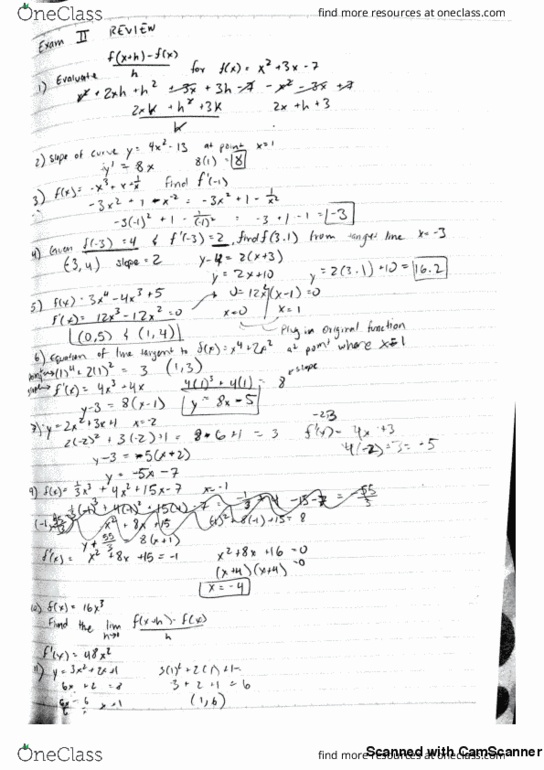 OneClass
find more resources at oneclass.com
Exam II REVIEW
1) Evaluate f(x+h)-f(x)/h for f(x) = x² + 3x - 7
x² + 2xh + h² + 3x + 3h - 7 - x² - 3x + 7
2xh + h² + 3h / h 2x + h + 3
2) slope of curve y = 4x² - 13 at point x=1
y' = 8x 8(1) = 8
3) f(x) = -x³ + x + 1/x find f'(-1)
-3x² + 1 - x⁻² = -3x² + 1 - 1/x²
-3(-1)² + 1 - 1/(-1)² = -3 + 1 - 1 = -3
4) Given f(-3) = 4 & f'(-3) = 2, find f(3.1) from tangent line x = -3
(-3, 4) slope = 2 y - 4 = 2(x+3)
y = 2x+10 y = 2(3.1) + 10 = 16.2
5) f(x) = 3x⁴ - 4x³ + 5
f'(x) = 12x³ - 12x² = 0 → 0 = 12x²(x-1) = 0
x=0 x=1
(0,5) & (1,4) Plug in original function
at point where x=1
6) Equation of line tangent to f(x) = x⁴ + 2x²
(1)⁴ + 2(1)² = 3 (1,3)
slope → f'(x) = 4x³ + 4x 4(1)³ + 4(1) = 8 slope
y-3 = 8(x-1) y = 8x - 5
7) y = 2x² + 3x + 1 x = -2
2(-2)² + 3(-2) + 1 = 8 - 6 + 1 = 3 f'(x) = 4x + 3
4(-2) + 3 = -5
y-3 = -5(x+2)
y = -5x - 7
9) f(x) = 1/3x³ + 4x² + 15x - 7 x = -1
x² + 8x + 15
8(x+1)
f'(x) = x² + 8x + 15 = -1 x² + 8x + 16 = 0
(x+4)(x+4) = 0
x = -4
10) f(x) = 16x³
Find the lim h→0 f(x+h) - f(x)/h
f'(x) = 48x²
11) y = 3x² + 2x + 1 3(1)² + 2(1) + 1 =
6x + 2 = 8 3 + 2 + 1 = 6
x = 1 (1,6)
Scanned with CamScanner
OneClass
find more resources at oneclass.com